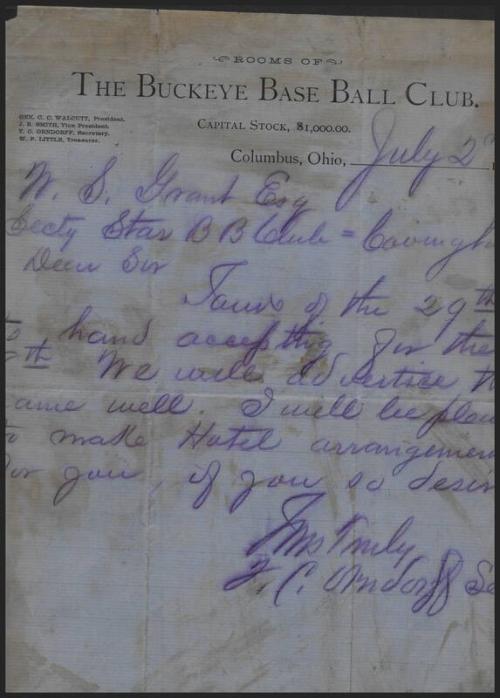 ROOMS OF
THE BUCKEYE BASE BALL CLUB.
CAPITAL STOCK, $1,000.00.
GEN. C. C. WALCUTT, President.
J. R. SMITH, Vice President.
T. C. ORNDORFF, Secretary.
W. P. LITTLE, Treasurer.
Columbus, Ohio, July 2
W. S. Grant Esq
Secty Star B B Club = Covingt
Dear Sir
Favor of the 29th
to hand accepting for the
th We will advertise th
ame well. I will be pleas
to make Hotel arrangemen
for you, if you so desir
Yours Truly
T. C. Orndorff Se